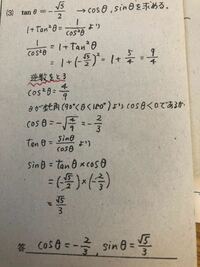 (3) tanθ = -√5/2 → cosθ, sinθを求める。
1+tan²θ = 1/cos²θ より
1/cos²θ = 1+tan²θ
= 1+(-√5/2)² = 1+5/4 = 9/4
逆数をとる
cos²θ = 4/9
θが鈍角(90°<θ<180°)よりcosθ<0であるから
cosθ = -√4/9 = -2/3
tanθ = sinθ/cosθ より
sinθ = tanθ×cosθ
= (-√5/2)×(-2/3)
= √5/3
答 cosθ = -2/3, sinθ = √5/3